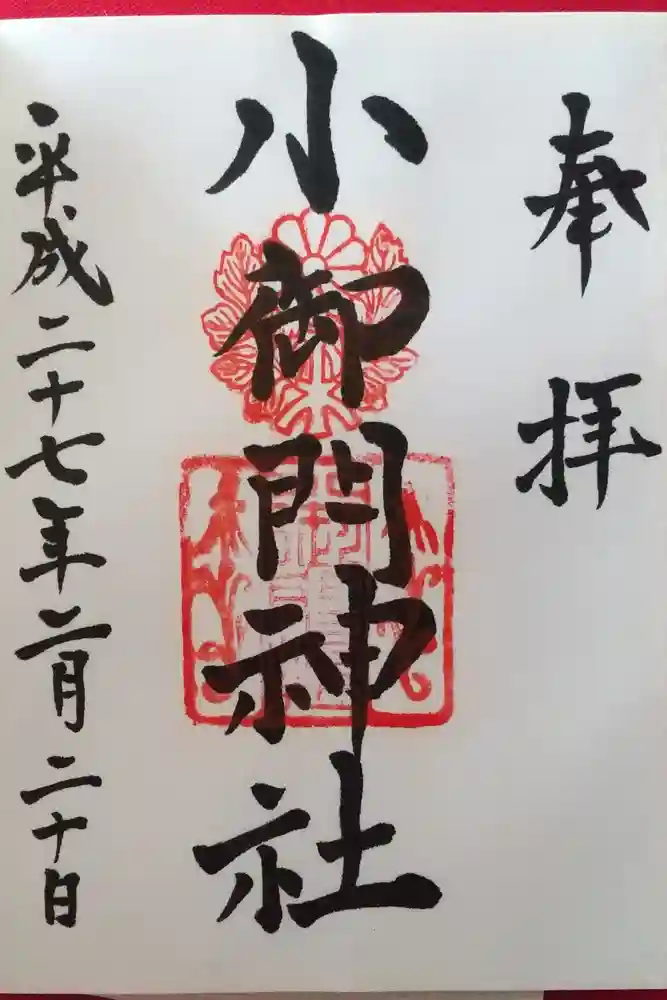 奉拝
小御門神社
平成二十七年二月二十日